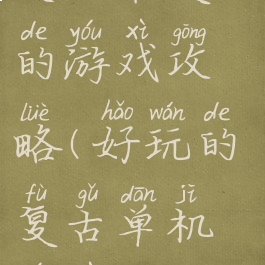 de yóu xì gōng
的游戏攻
lüè hǎo wán de
略(好玩的
fù gǔ dān jī
复古单机